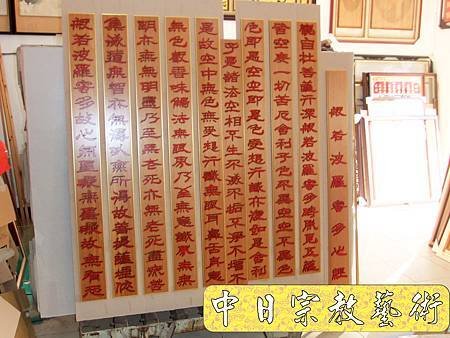 般若波羅蜜多心經
觀自在菩薩行深般若波羅蜜多時照見五蘊
皆空度一切苦厄舍利子色不異空空不異色
色即是空空即是色受想行識亦復如是舍利
子是諸法空相不生不滅不垢不淨不增不
是故空中無色無受想行識無眼耳鼻舌身意
無色聲香味觸法無眼界乃至無意識界無無
明亦無無明盡乃至無老死亦無老死盡無苦
集滅道無智亦無得以無所得故菩提薩埵依
般若波羅蜜多故心無罣礙無罣礙故無有恐
中日宗教藝術